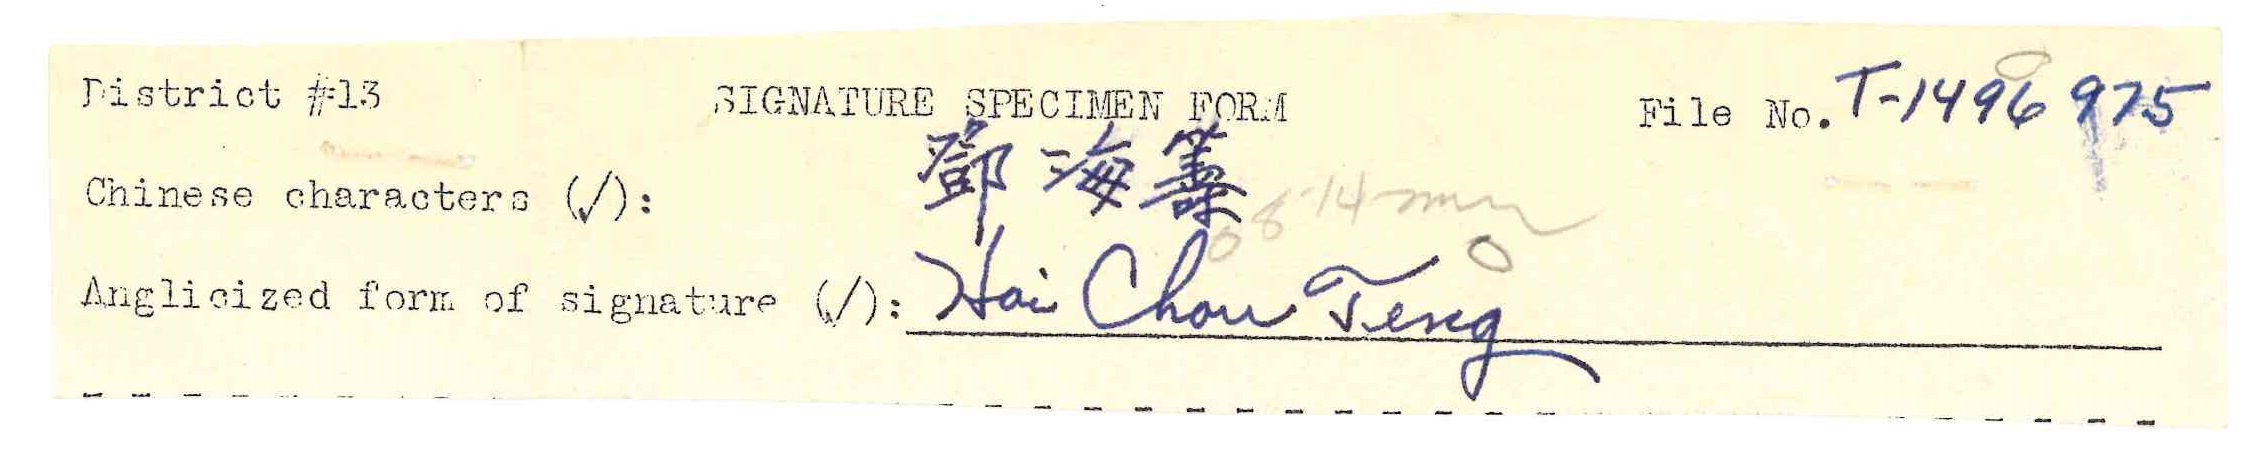 District #13 SIGNATURE SPECIMEN FORM File No. T-1496 975
Chinese characters (✓): 鄧海籌
Anglicized form of signature (✓): Hai Chou Teng